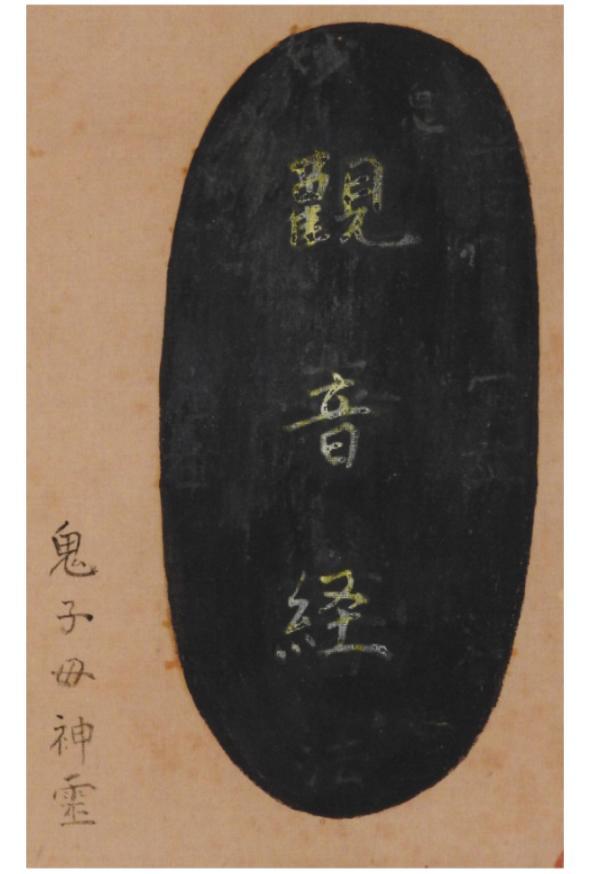 觀音経
鬼子毋神霊